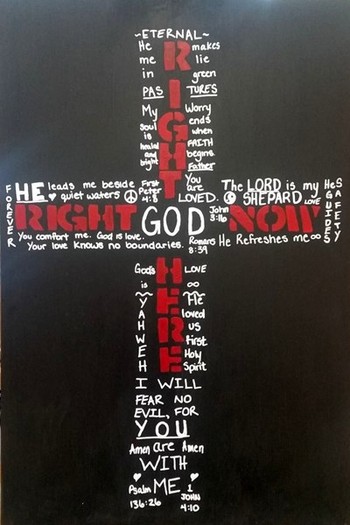 ~ETERNAL~
He makes
me lie
in green
PAS TURES
RIGHT
My Worry
soul ends
is when
healed FAITH
and begins
bright Father
HE leads me beside
♥ quiet waters ☮
First
Peter
4:8
You
are
LOVED.
The LORD is my
☮ SHEPARD LOVE
HeS
FOREVER
RIGHT GOD NOW
John
3:16
SAFETY
GUIDES
You comfort me. God is love.
Your love knows no boundaries.
Romans
8:39
He Refreshes me∞
HERE
God's LOVE
is ∞
~YAHWEH
He
loved
us
First
Holy
Spirit
I WILL
FEAR NO
EVIL, FOR
YOU
Amen are Amen
WITH
♥ ME ♥
Psalm
136:26
1
JOHN
4:10